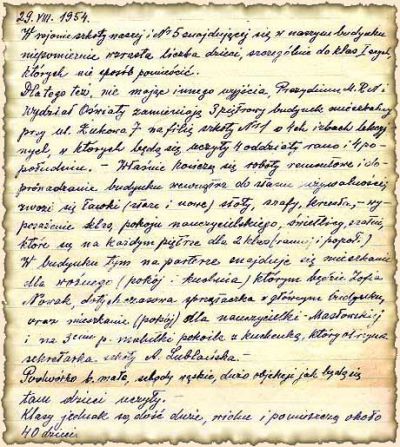 29. VIII. 1954.
W rejonie szkoły naszej i № 5 znajdującej się w naszym budynku
niepomiernie wzrasta liczba dzieci, szczególnie do klas I-szych,
których nie sposób pomieścić.
Dlatego też, nie mając innego wyjścia, Prezydium M.R.N i
Wydział Oświaty zamieniają 3 piętrowy budynek mieszkalny
przy ul. Żukowa 7 na filię szkoły №1 o 4ch izbach lekcyj
nych, w których będą się uczyły 4 oddziały rano i 4 po
południu. – Właśnie kończą się roboty remontowe i do-
prowadzanie budynku wewnątrz do stanu używalności,
zwozi się ławki (stare i nowe) stoły, szafy, kreselka, wy-
posażenie klas, pokoju nauczycielskiego, świetlicy, szatni,
które są na każdym piętrze dla 2 klas (rannej i popoł.)
W budynku tym na parterze znajduje się mieszkanie
dla woźnego (pokój i kuchnia) którym będzie Zofia
Nowak, dotychczasowa sprzątaczka w głównym budynku,
oraz mieszkanie (pokój) dla nauczycielki - Masłowskiej
i na 3cim p. malutki pokoik z kuchenką, który otrzyma
sekretarka szkoły A. Lublańska. –
Podwórko b. małe, schody wąskie, dużo obiekcji jak będą się
tam dzieci uczyły.
Klasy jednak są dość duże, widne i pomieszczą około
40 dzieci.